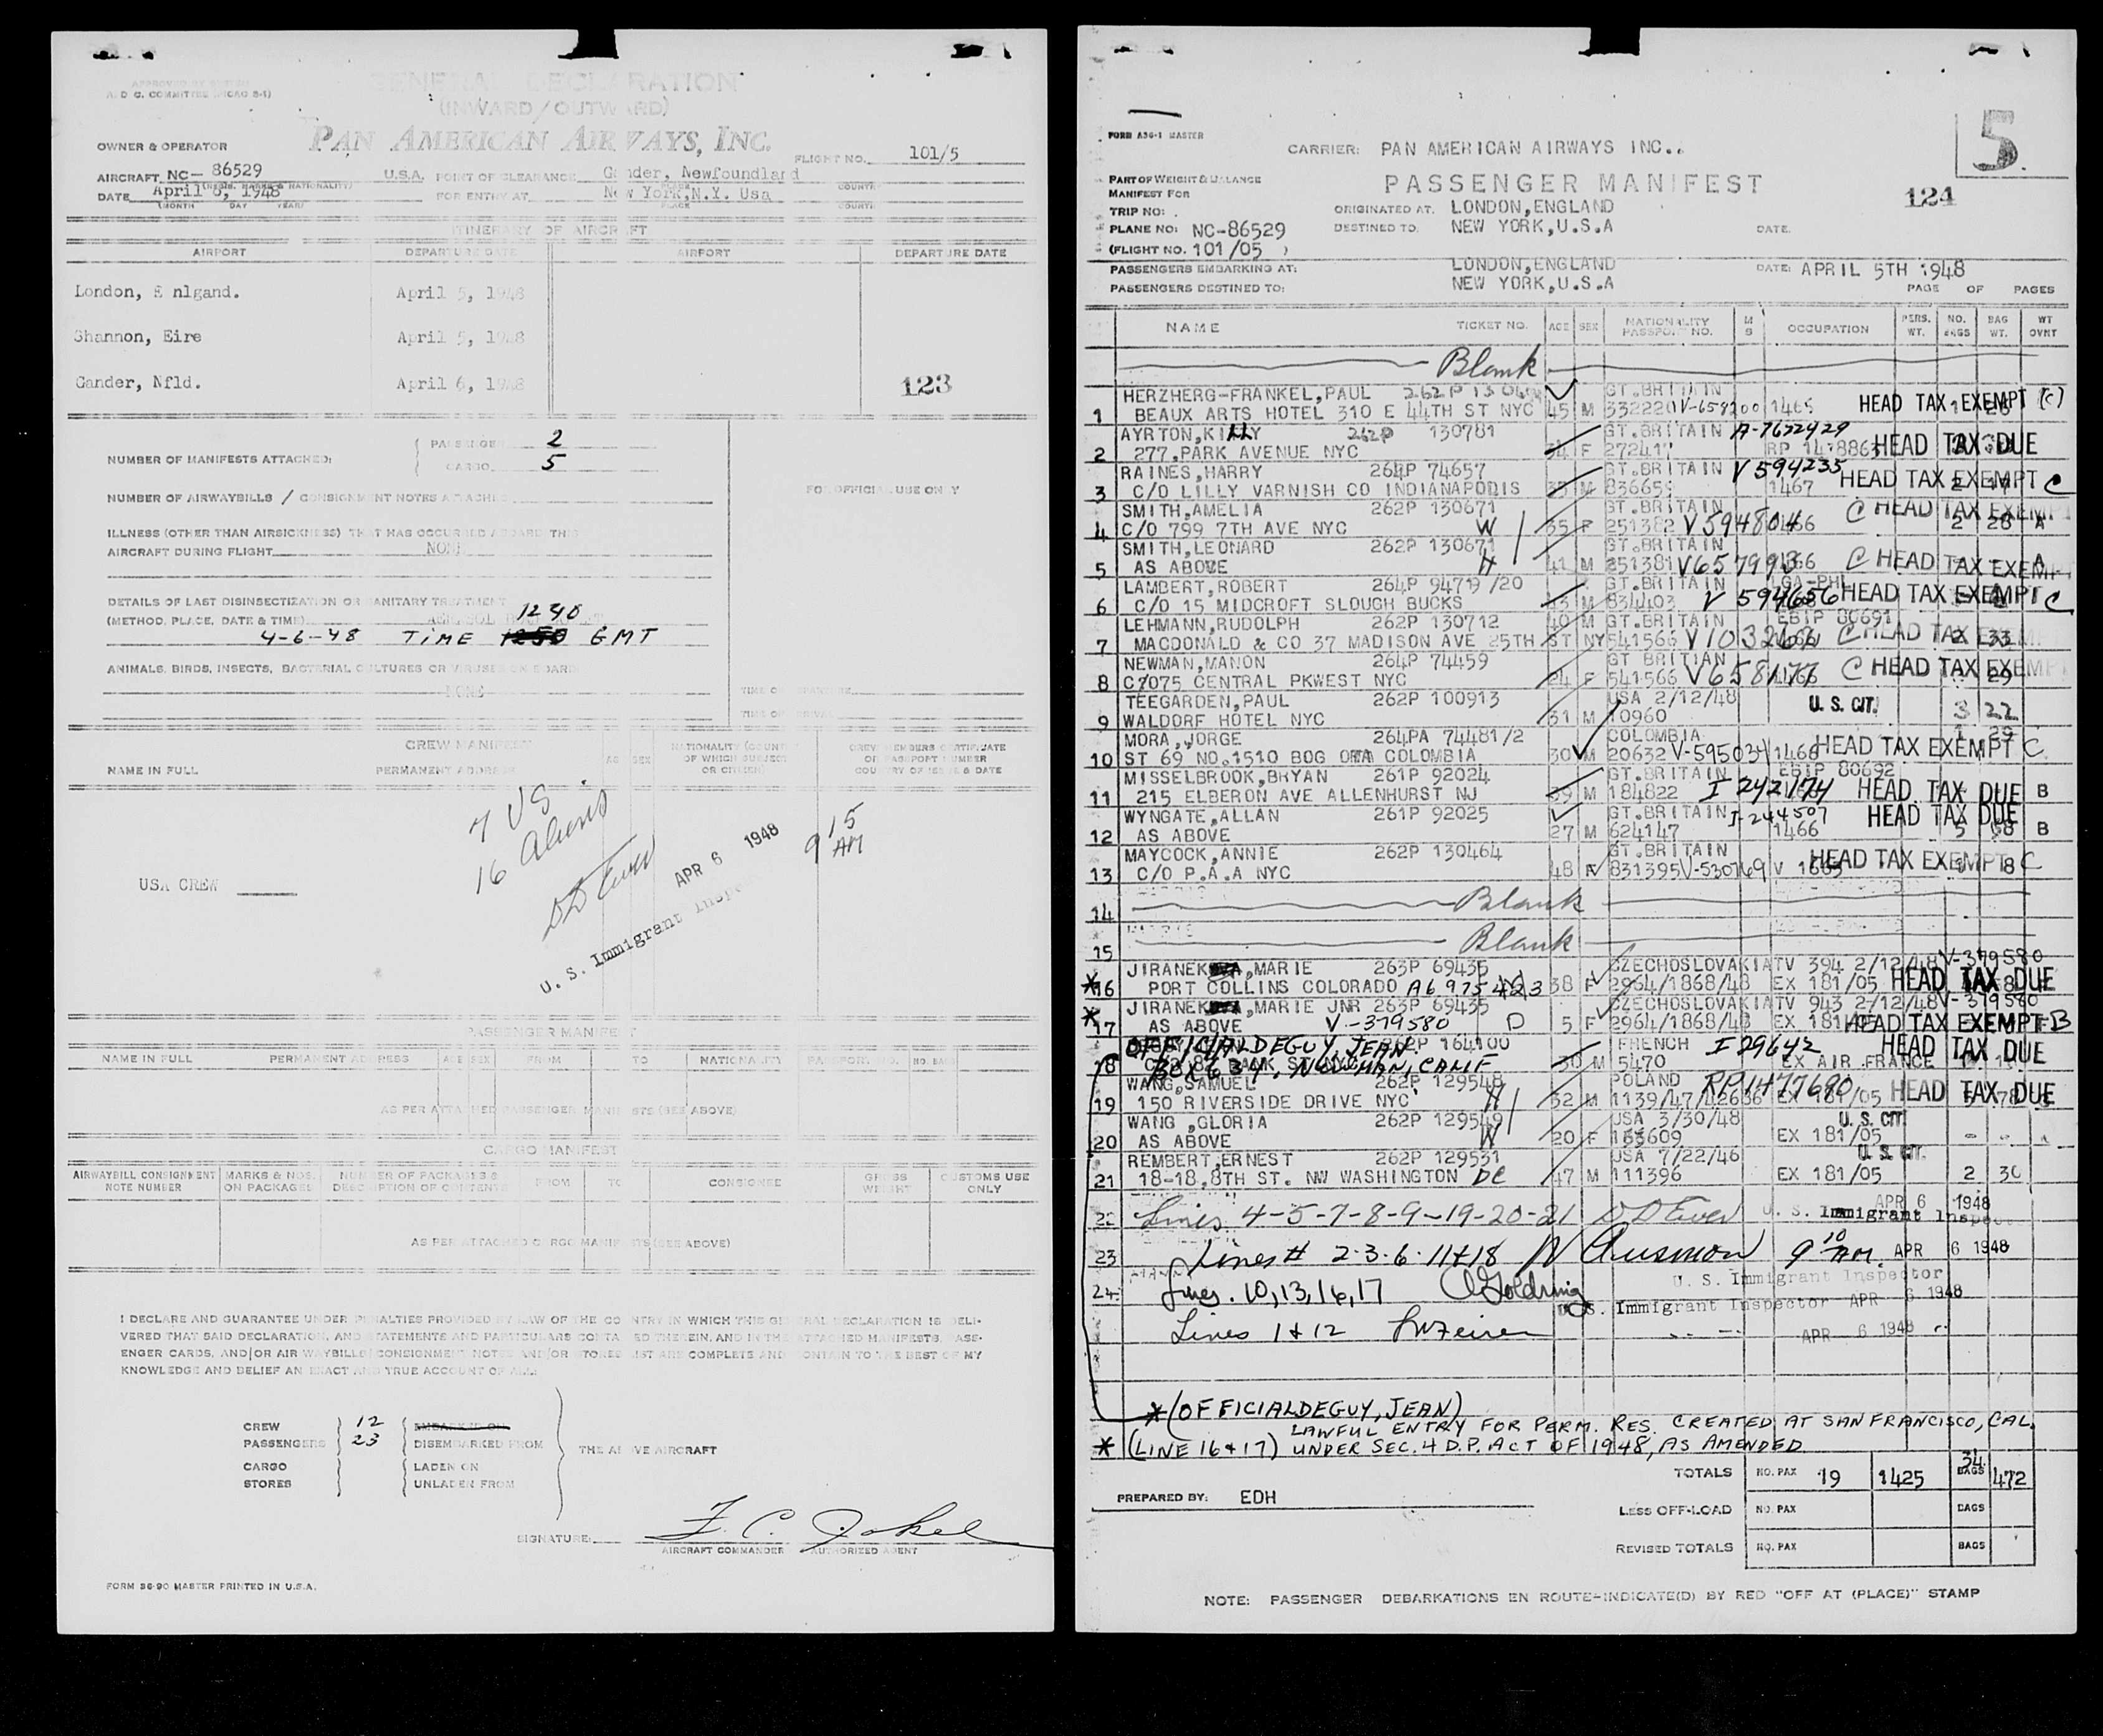 APPROVED BY
A. D C. COMMITTEE (MICAO 8-1)
GENERAL DECLARATION
(INWARD/OUTWARD)
PAN AMERICAN AIRWAYS, INC.
OWNER & OPERATOR
FLIGHT NO. 101/5
AIRCRAFT NC- 86529 U.S.A. POINT OF CLEARANCE Gander, Newfoundland
DATE April 6, 1948 FOR ENTRY AT New York,N.Y. Usa
(MONTH DAY YEAR) PLACE COUNTRY
ITINERARY OF AIRCRAFT
AIRPORT DEPARTURE DATE AIRPORT DEPARTURE DATE
London, E nlgand. April 5, 1948
Shannon, Eire April 5, 1948
Gander, Nfld. April 6, 1948
123
NUMBER OF MANIFESTS ATTACHED: PASSENGER 2
CARGO 5
NUMBER OF AIRWAYBILLS / CONSIGNMENT NOTES ATTACHED
FOR OFFICIAL USE ONLY
ILLNESS (OTHER THAN AIRSICKNESS) THAT HAS OCCURRED ABOARD THIS
AIRCRAFT DURING FLIGHT NONE
DETAILS OF LAST DISINSECTIZATION OR SANITARY TREATMENT
(METHOD, PLACE, DATE & TIME) 1240
4-6-48 TIME 1250 GMT
ANIMALS, BIRDS, INSECTS, BACTERIAL CULTURES OR VIRUSES ON BOARD
NONE
TIME OF DEPARTURE
TIME OF ARRIVAL
CREW MANIFEST
NAME IN FULL PERMANENT ADDRESS AGE SEX NATIONALITY (COUNTRY OF WHICH SUBJECT OR CITIZEN) CREW MEMBERS CERTIFICATE OR PASSPORT NUMBER COUNTRY OF ISSUE & DATE
7 US
16 Aliens
9 15 AM
APR 6 1948
U. S. Immigrant Inspector
USA CREW
PASSENGER MANIFEST
NAME IN FULL PERMANENT ADDRESS AGE SEX FROM TO NATIONALITY PASSPORT NO. NO. BAGS
AS PER ATTACHED PASSENGER MANIFESTS (SEE ABOVE)
CARGO MANIFEST
AIRWAYBILL CONSIGNMENT NOTE NUMBER MARKS & NOS. ON PACKAGES NUMBER OF PACKAGES & DESCRIPTION OF CONTENTS FROM TO CONSIGNEE GROSS WEIGHT CUSTOMS USE ONLY
AS PER ATTACHED CARGO MANIFESTS (SEE ABOVE)
I DECLARE AND GUARANTEE UNDER PENALTIES PROVIDED BY LAW OF THE COUNTRY IN WHICH THIS GENERAL DECLARATION IS DELI-
VERED THAT SAID DECLARATION, AND STATEMENTS AND PARTICULARS CONTAINED THEREIN, AND IN THE ATTACHED MANIFESTS, PASS-
ENGER CARDS, AND/OR AIR WAYBILLS/CONSIGNMENT NOTES AND/OR STORES LIST ARE COMPLETE AND CONTAIN TO THE BEST OF MY
KNOWLEDGE AND BELIEF AN EXACT AND TRUE ACCOUNT OF ALL:
CREW 12 EMBARKED ON
PASSENGERS 23 DISEMBARKED FROM THE ABOVE AIRCRAFT
CARGO LADEN ON
STORES UNLADEN FROM
SIGNATURE:
AIRCRAFT COMMANDER AUTHORIZED AGENT
FORM 86-90 MASTER PRINTED IN U.S.A.
5
FORM A36-1 MASTER
CARRIER: PAN AMERICAN AIRWAYS INC..
PART OF WEIGHT & BALANCE PASSENGER MANIFEST
MANIFEST FOR 124
TRIP NO: ORIGINATED AT. LONDON,ENGLAND
PLANE NO: NC-86529 DESTINED TO. NEW YORK,U.S.A DATE.
(FLIGHT NO. 101/05 )
PASSENGERS EMBARKING AT: LONDON,ENGLAND DATE: APRIL 5TH 1948
PASSENGERS DESTINED TO: NEW YORK,U.S.A PAGE OF PAGES
NAME TICKET NO. AGE SEX NATIONALITY PASSPORT NO. M S OCCUPATION PERS. WT. NO. BAGS BAG WT. WT OVNT
Blank
HERZHERG-FRANKEL,PAUL GT.BRITAIN
1 BEAUX ARTS HOTEL 310 E 44TH ST NYC 45 M HEAD TAX EXEMPT (C)
AYRTON,KILLY 262P 130781 GT.BRITAIN A-7672429
2 277,PARK AVENUE NYC F HEAD TAX DUE
RAINES,HARRY 264P 74657 GT.BRITAIN V 594235
3 C/O LILLY VARNISH CO INDIANAPOLIS M 836659 1467 HEAD TAX EXEMPT C
SMITH,AMELIA 262P 130671 GT.BRITAIN
4 C/O 799 7TH AVE NYC W 35 F 251382 V594804 C HEAD TAX EXEMPT 2 28 A
SMITH,LEONARD 262P 130671 GT.BRITAIN
5 AS ABOVE H 41 M 251381 C HEAD TAX EXEMPT A
LAMBERT,ROBERT 264P 94719/20 GT.BRITAIN
6 C/O 15 MIDCROFT SLOUGH BUCKS 43 M 834403 V 594656 HEAD TAX EXEMPT C
LEHMANN,RUDOLPH 262P 130712 40 M GT.BRITAIN EBTP 80691
7 MACDONALD & CO 37 MADISON AVE 25TH ST NY 541566 C HEAD TAX EXEMPT 2 33
NEWMAN,MANON 264P 74459 GT BRITIAN
8 C/075 CENTRAL PKWEST NYC F 541566 V658177 C HEAD TAX EXEMPT 29
TEEGARDEN,PAUL 262P 100913 USA 2/12/48
9 WALDORF HOTEL NYC 31 M 10960 U. S. CIT. 3 22
MORA,JORGE 264PA 74481/2 COLOMBIA
10 ST 69 NO.1510 BOG OTA COLOMBIA 30 M 20632 1466 HEAD TAX EXEMPT C
MISSELBROOK,BRYAN 261P 92024 GT.BRITAIN EBTP 80692
11 215 ELBERON AVE ALLENHURST NJ 39 M 184822 I 242174 HEAD TAX DUE B
WYNGATE,ALLAN 261P 92025 GT.BRITAIN I-244507
12 AS ABOVE 27 M 624147 1466 HEAD TAX DUE B
MAYCOCK,ANNIE 262P 130464 GT.BRITAIN
13 C/O P.A.A NYC 48 F 831395 V-530769 HEAD TAX EXEMPT C
14 Blank
15 Blank
JIRANEK,MARIE 263P 69435 CZECHOSLOVAKIA TV 394 2/12/48 V-379580
*16 PORT COLLINS COLORADO 38 F 2964/1868/48 EX 181/05 HEAD TAX DUE
JIRANEK,MARIE JNR 263P 69435 CZECHOSLOVAKIA TV 943 2/12/48 V-379580
*17 AS ABOVE V-379580 D 5 F 2964/1868/48 EX 181/05 HEAD TAX EXEMPT B
OFFICIALDEGUY, JEAN. 262P 164100 FRENCH I 29642
18 BOX 634, NEWMAN, CALIF 30 M 5470 EX AIR FRANCE HEAD TAX DUE
WANG,SAMUEL 262P 129548 POLAND RP1477690
19 150 RIVERSIDE DRIVE NYC H 32 M 1139/47/42636 EX 181/05 HEAD TAX DUE
WANG ,GLORIA 262P 129549 USA 3/30/48 U. S. CIT.
20 AS ABOVE W 20 F 183609 EX 181/05
REMBERT,ERNEST 262P 129531 USA 7/22/46 U. S. CIT.
21 18-18,8TH ST. NW WASHINGTON DC 47 M 111396 EX 181/05 2 30
APR 6 1948
22 Lines 4-5-7-8-9-19-20-21 U. S. Immigrant Inspector
23 Lines # 2·3·6·11+18 9 10 AM. APR 6 1948
U. S. Immigrant Inspector
24 Lines. 10,13,16,17
U. S. Immigrant Inspector APR 6 1948
Lines 1 + 12 APR 6 1948
* (OFFICIALDEGUY, JEAN)
LAWFUL ENTRY FOR PERM. RES. CREATED AT SAN FRANCISCO, CAL.
* (LINE 16+17) UNDER SEC. 4 D.P. ACT OF 1948, AS AMENDED
TOTALS NO. PAX 19 1425 34 BAGS 472
PREPARED BY: EDH
LESS OFF-LOAD NO. PAX BAGS
REVISED TOTALS NO. PAX BAGS
NOTE: PASSENGER DEBARKATIONS EN ROUTE-INDICATE(D) BY RED "OFF AT (PLACE)" STAMP